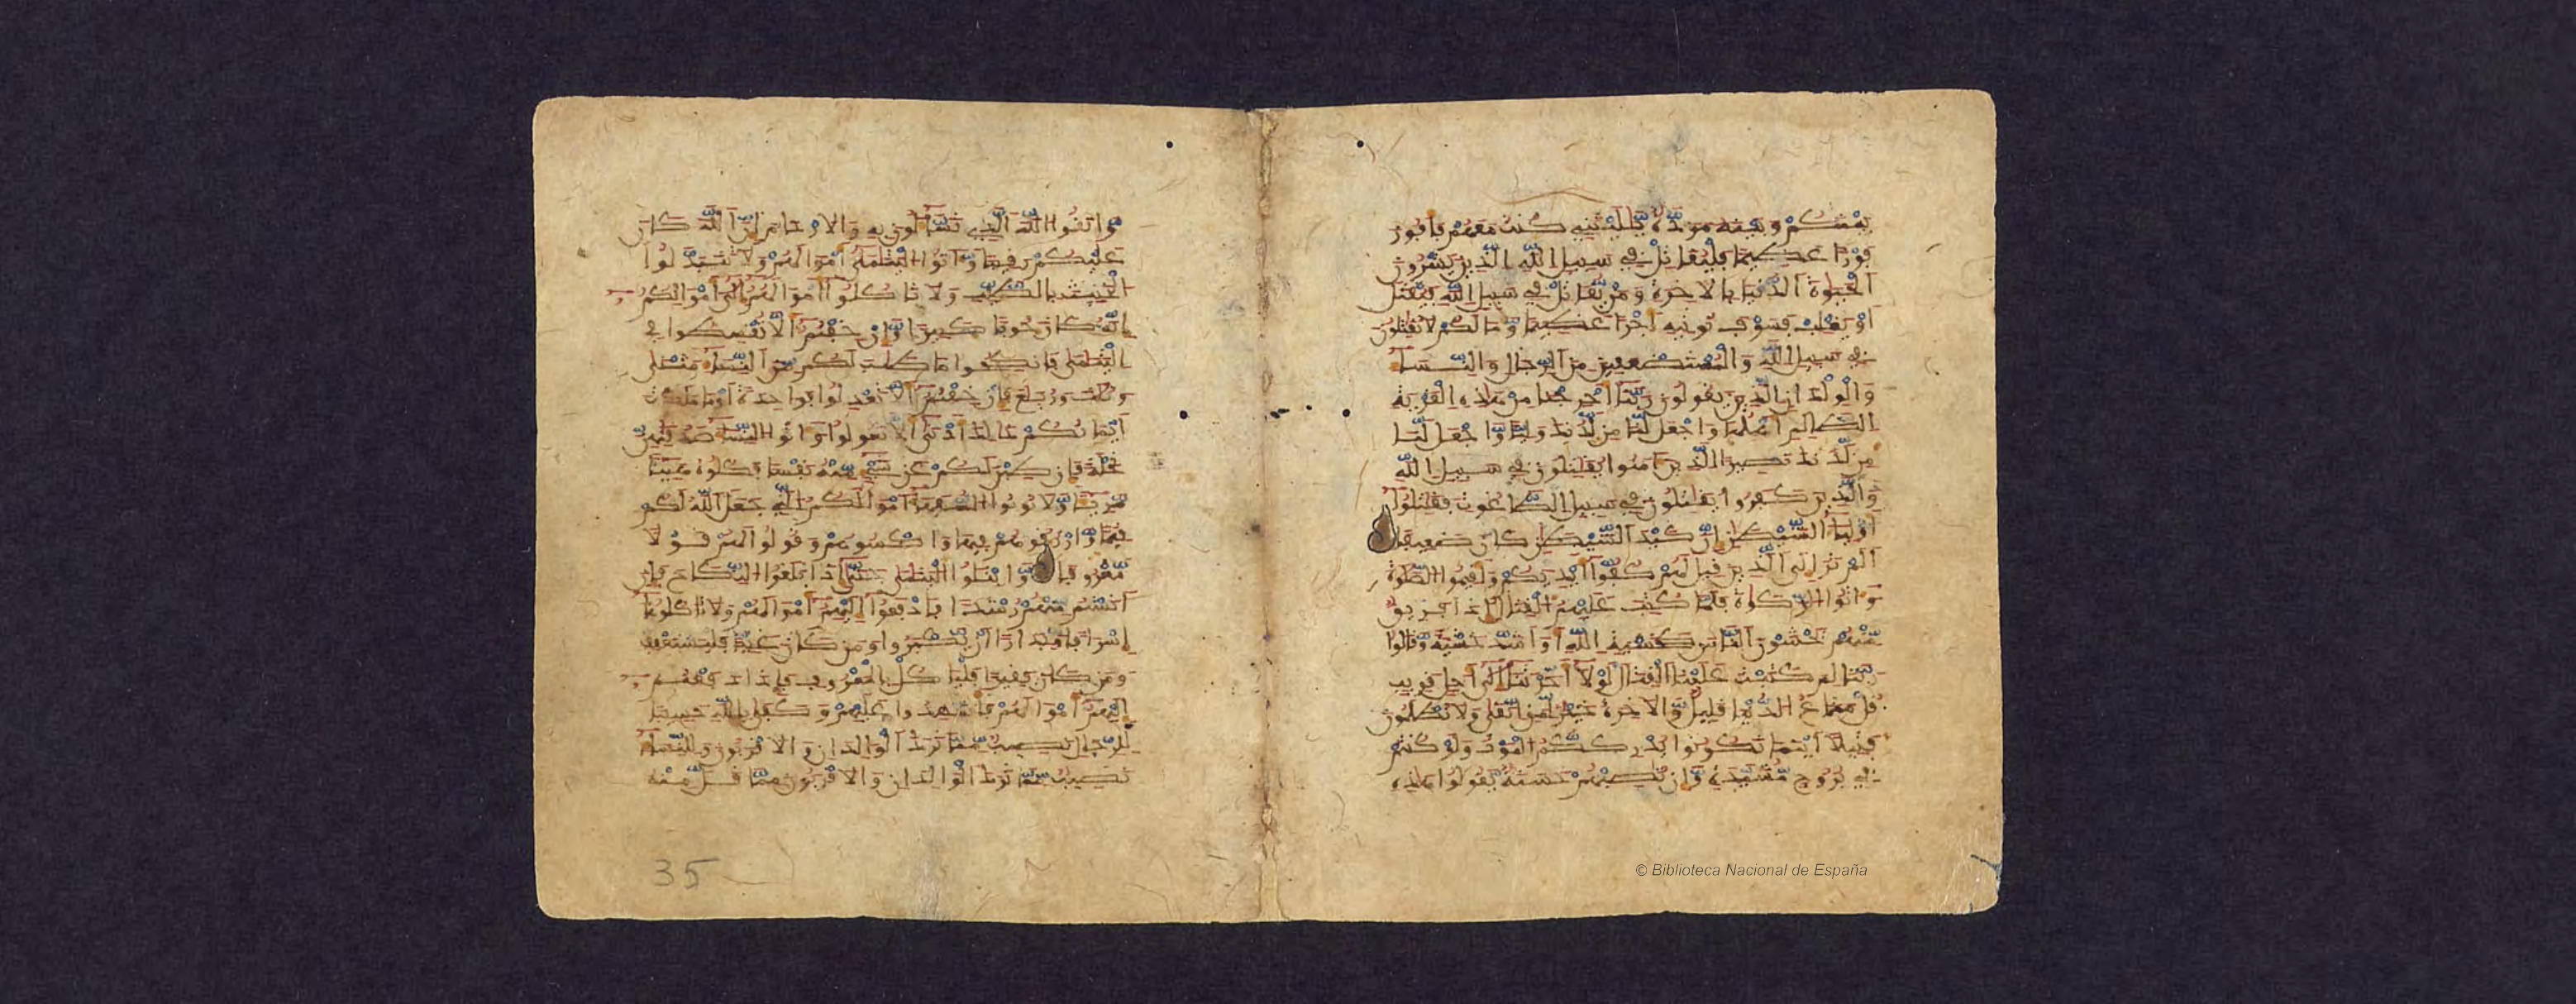 بينكم وبينه مودة يليتني كنت معهم فافوز
فوزا عظيما فليقاتل في سبيل الله الذين يشرون
الحيوة الدنيا بالاخرة ومن يقاتل في سبيل الله فيقتل
او يغلب فسوف نوتيه اجرا عظيما وما لكم لا تقتلون
في سبيل الله والمستضعفين من الرجال والنسا
والولدان الذين يقولون ربنا اخرجنا من هذه القرية
الظالم اهلها واجعل لنا من لدنك وليا واجعل لنا
من لدنك نصيرا الذين امنوا يقتلون في سبيل الله
والذين كفروا يقتلون في سبيل الطاغوت فقتلوا
اوليا الشيطن ان كيد الشيطن كان ضعيفا
الم تر الى الذين قيل لهم كفوا ايديكم واقيموا الصلوة
واتوا الزكوة فلما كتب عليهم القتال اذا فريق
منهم يخشون الناس كخشية الله او اشد خشية وقالوا
ربنا لم كتبت علينا القتال لولا اخرتنا الى اجل قريب
قل متاع الدنيا قليل والاخرة خير لمن اتقى ولا تظلمون
فتيلا اينما تكونوا يدرككم الموت ولو كنتم
في بروج مشيدة وان تصبهم حسنة يقولوا هذه
واتقوا الله الذي تسالون به والارحام ان الله كان
عليكم رقيبا واتوا اليتمى اموالهم ولا تتبدلوا
الخبيث بالطيب ولا تاكلوا اموالهم الى اموالكم
انه كان حوبا كبيرا وان خفتم الا تقسطوا في
اليتمى فانكحوا ما طاب لكم من النسا مثنى
وثلث وربع فان خفتم الا تعدلوا فواحدة او ما ملكت
ايمانكم ذالك ادنى الا تعولوا واتوا النسا صدقتهن
نحلة فان طبن لكم عن شي منه نفسا فكلوه هنيا
مريا ولا توتوا السفها اموالكم التي جعل الله لكم
قيما وارزقوهم فيها واكسوهم وقولوا لهم قولا
معروفا وابتلوا اليتمى حتى اذا بلغوا النكاح فان
انستم منهم رشدا فادفعوا اليهم اموالهم ولا تاكلوها
اسرافا وبدارا ان يكبروا ومن كان غنيا فليستعفف
ومن كان فقيرا فلياكل بالمعروف فاذا دفعتم
اليهم اموالهم فاشهدوا عليهم وكفى بالله حسيبا
للرجال نصيب مما ترك الوالدان والاقربون وللنسا
نصيب مما ترك الوالدان والاقربون مما قل منه
35
© Biblioteca Nacional de España